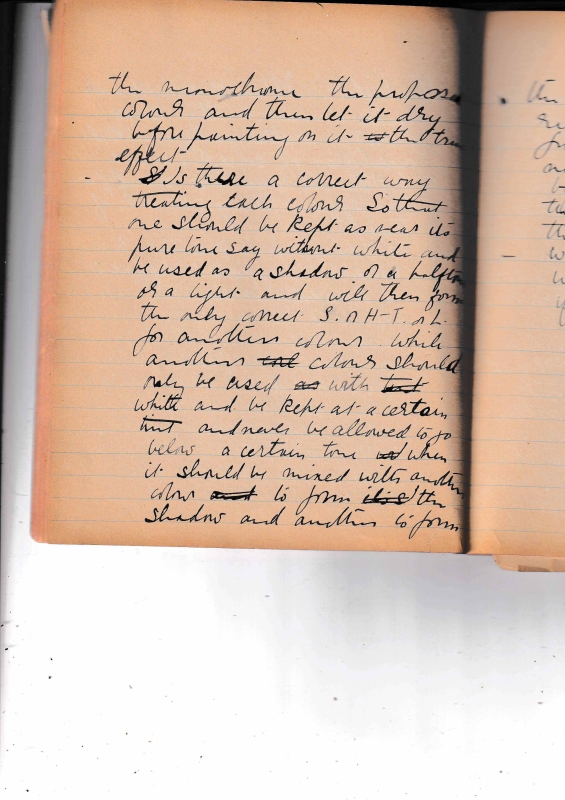 the monochrome the
colour and then let it dry
before painting on it to the true
effect
- Is there a correct way
treating each colour so that
one should be kept as near its
pure tone say without white and
be used as a shadow or a halfton
or a light and will then form
the only correct S. or H-T. or L.
for another colour. While
another col colour should
only be used as with tint
white and be kept at a certain
tint and never be allowed to go
below a certain tone when
it should be mixed with another
colour and to form the
shadow and another to form